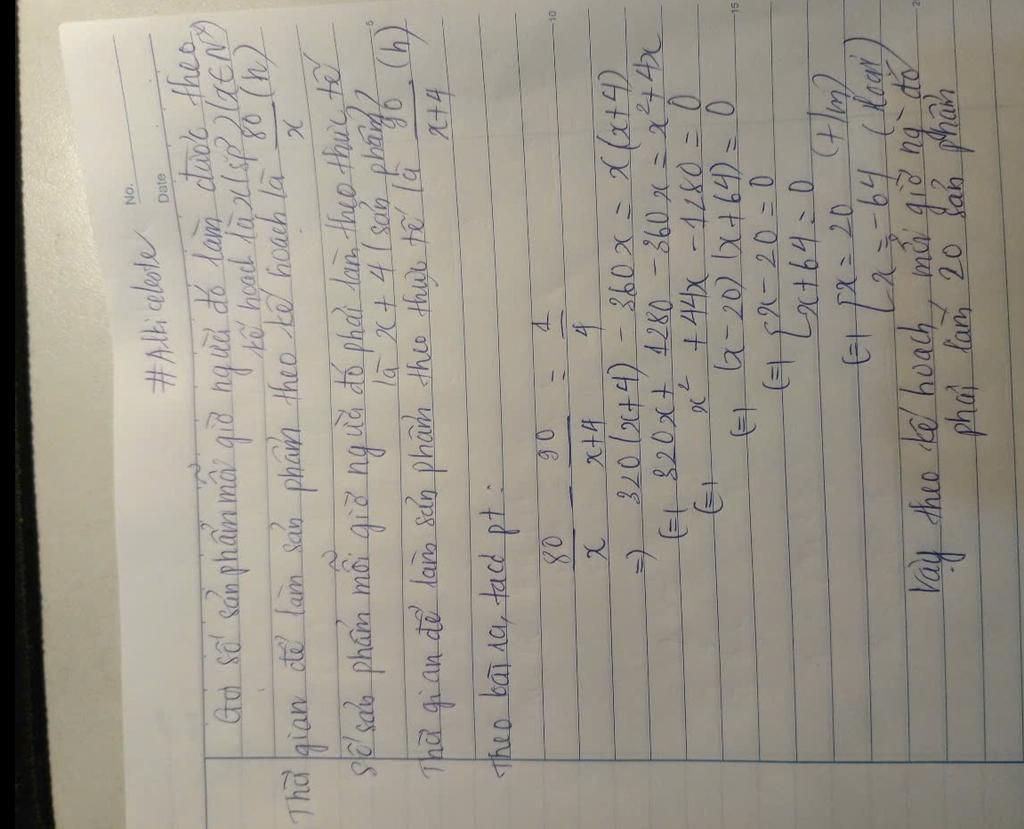 No.
Date
#Alliceleste
Gọi số sản phẩm mỗi giờ người đó làm được theo
kế hoạch là x (sp) (x ∈ N*)
Thời gian để làm sản phẩm theo kế hoạch là 80/x (h)
Số sản phẩm mỗi giờ người đó phải làm theo thực tế
là x + 4 (sản phẩm)
Thời gian để làm sản phẩm theo thực tế là 90/(x+4) (h)
Theo bài ra, ta có pt:
80/x - 90/(x+4) = 1/4
=> 320(x+4) - 360x = x(x+4)
(=) 320x + 1280 - 360x = x² + 4x
(=) x² + 44x - 1280 = 0
(=) (x - 20)(x + 64) = 0
(=) [x - 20 = 0
[x + 64 = 0
(=) [x = 20 (t/m)
[x = -64 (loại)
Vậy theo kế hoạch, mỗi giờ ng đó
phải làm 20 sản phẩm
5
10
15